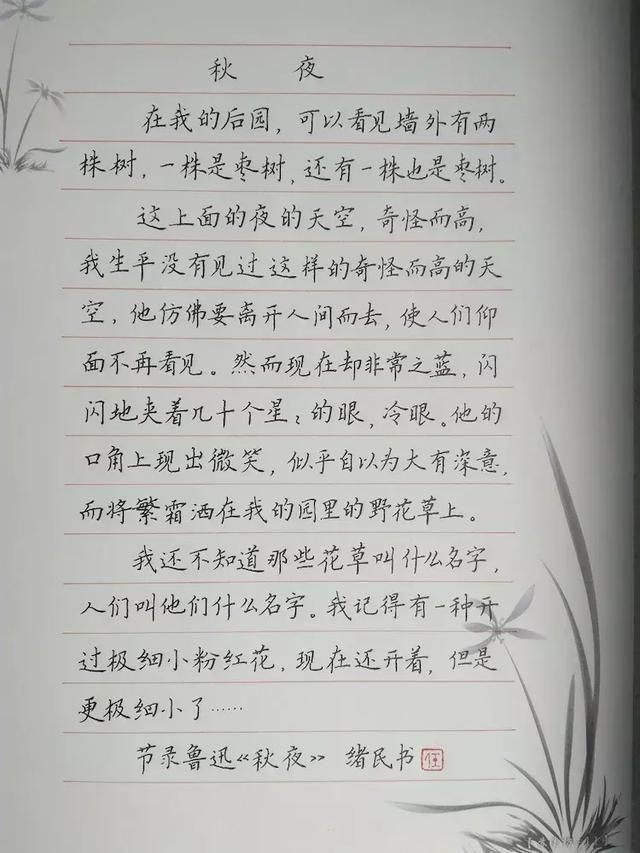 秋 夜
在我的后园，可以看见墙外有两
株树，一株是枣树，还有一株也是枣树。
这上面的夜的天空，奇怪而高，
我生平没有见过这样的奇怪而高的天
空，他仿佛要离开人间而去，使人们仰
面不再看见。然而现在却非常之蓝，闪
闪地夹着几十个星〻的眼，冷眼。他的
口角上现出微笑，似乎自以为大有深意，
而将繁霜洒在我的园里的野花草上。
我还不知道那些花草叫什么名字，
人们叫他们什么名字。我记得有一种开
过极细小粉红花，现在还开着，但是
更极细小了……
节录鲁迅《秋夜》 绪民书 任